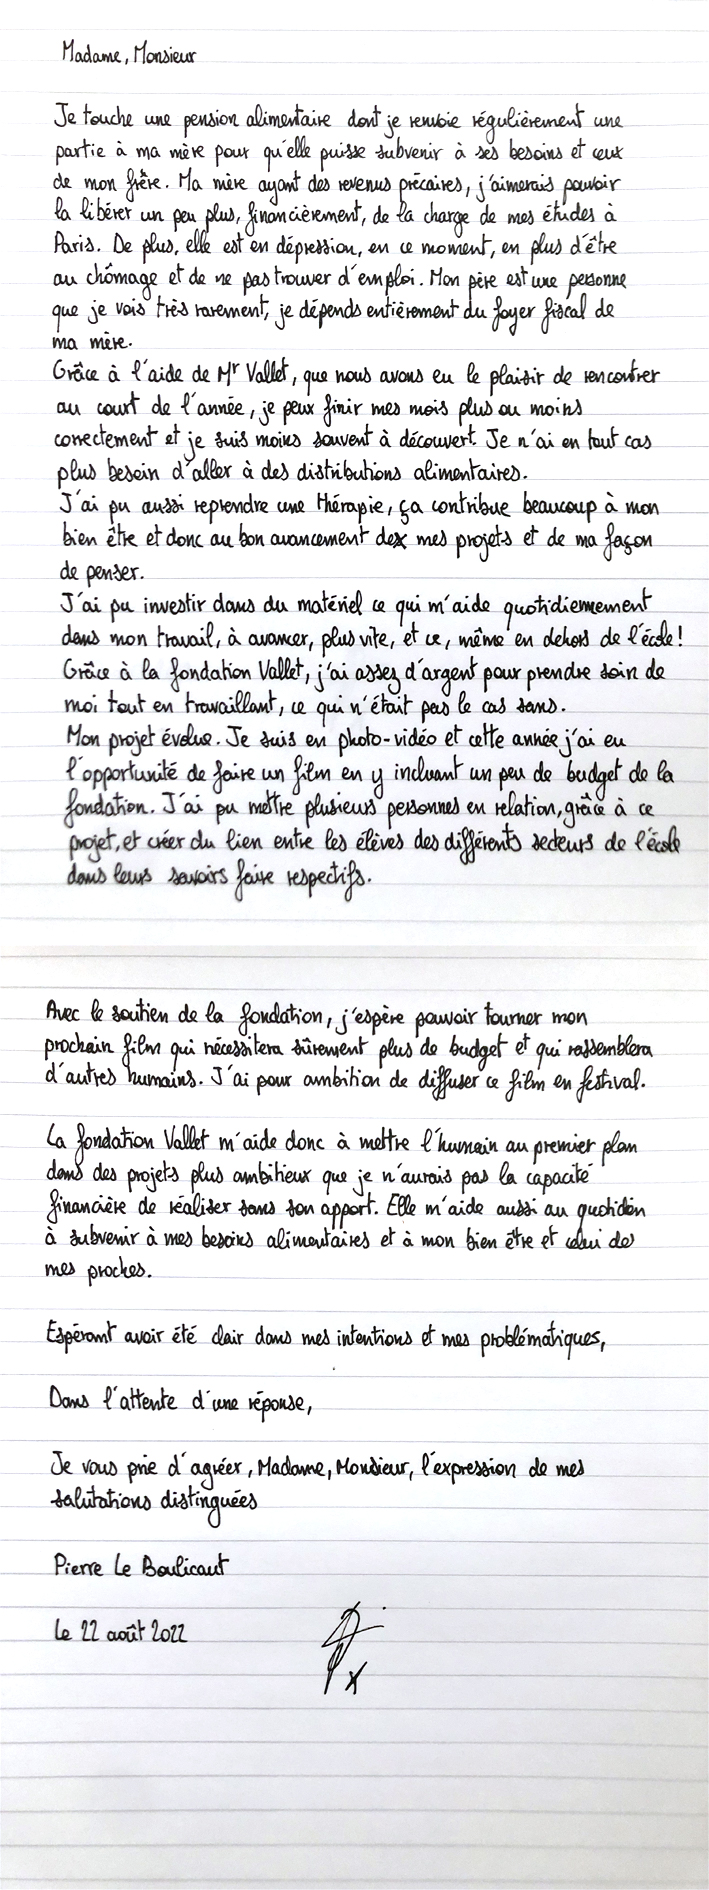 Madame, Monsieur
Je touche une pension alimentaire dont je renvoie régulièrement une
partie à ma mère pour qu'elle puisse subvenir à ses besoins et ceux
de mon frère. Ma mère ayant des revenus précaires, j'aimerais pouvoir
la libérer un peu plus, financièrement, de la charge de mes études à
Paris. De plus, elle est en dépression, en ce moment, en plus d'être
au chômage et de ne pas trouver d'emploi. Mon père est une personne
que je vois très rarement, je dépends entièrement du foyer fiscal de
ma mère.
Grâce à l'aide de Mr Vallet, que nous avons eu le plaisir de rencontrer
au court de l'année, je peux finir mes mois plus ou moins
correctement et je suis moins souvent à découvert. Je n'ai en tout cas
plus besoin d'aller à des distributions alimentaires.
J'ai pu aussi reprendre une thérapie, ça contribue beaucoup à mon
bien être et donc au bon avancement de mes projets et de ma façon
de penser.
J'ai pu investir dans du matériel ce qui m'aide quotidiennement
dans mon travail, à avancer, plus vite, et ce, même en dehors de l'école!
Grâce à la fondation Vallet, j'ai assez d'argent pour prendre soin de
moi tout en travaillant, ce qui n'était pas le cas sans.
Mon projet évolue. Je suis en photo-vidéo et cette année j'ai eu
l'opportunité de faire un film en y incluant un peu de budget de la
fondation. J'ai pu mettre plusieurs personnes en relation, grâce à ce
projet, et créer du lien entre les élèves des différents secteurs de l'école
dans leurs savoirs faire respectifs.
Avec le soutien de la fondation, j'espère pouvoir tourner mon
prochain film qui nécessitera sûrement plus de budget et qui rassemblera
d'autres humains. J'ai pour ambition de diffuser ce film en festival.
La fondation Vallet m'aide donc à mettre l'humain au premier plan
dans des projets plus ambitieux que je n'aurais pas la capacité
financière de réaliser sans son apport. Elle m'aide aussi au quotidien
à subvenir à mes besoins alimentaires et à mon bien être et celui de
mes proches.
Espérant avoir été clair dans mes intentions et mes problématiques,
Dans l'attente d'une réponse,
Je vous prie d'agréer, Madame, Monsieur, l'expression de mes
salutations distinguées
Pierre Le Boulicaut
Le 22 août 2022